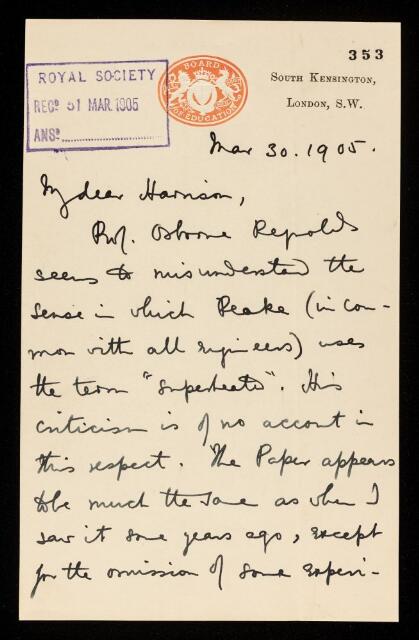 353
ROYAL SOCIETY
REC^D. 31 MAR. 1905
ANS^D.
BOARD
OF EDUCATION
SOUTH KENSINGTON,
LONDON, S.W.
Mar 30. 1905.
My dear Harrison,
Prof. Osborne Reynolds
seems to misunderstand the
sense in which Peake (in com-
mon with all engineers) uses
the term "superheated". His
criticism is of no account in
this respect. The Paper appears
to be much the same as when I
saw it some years ago, except
for the omission of some experi-